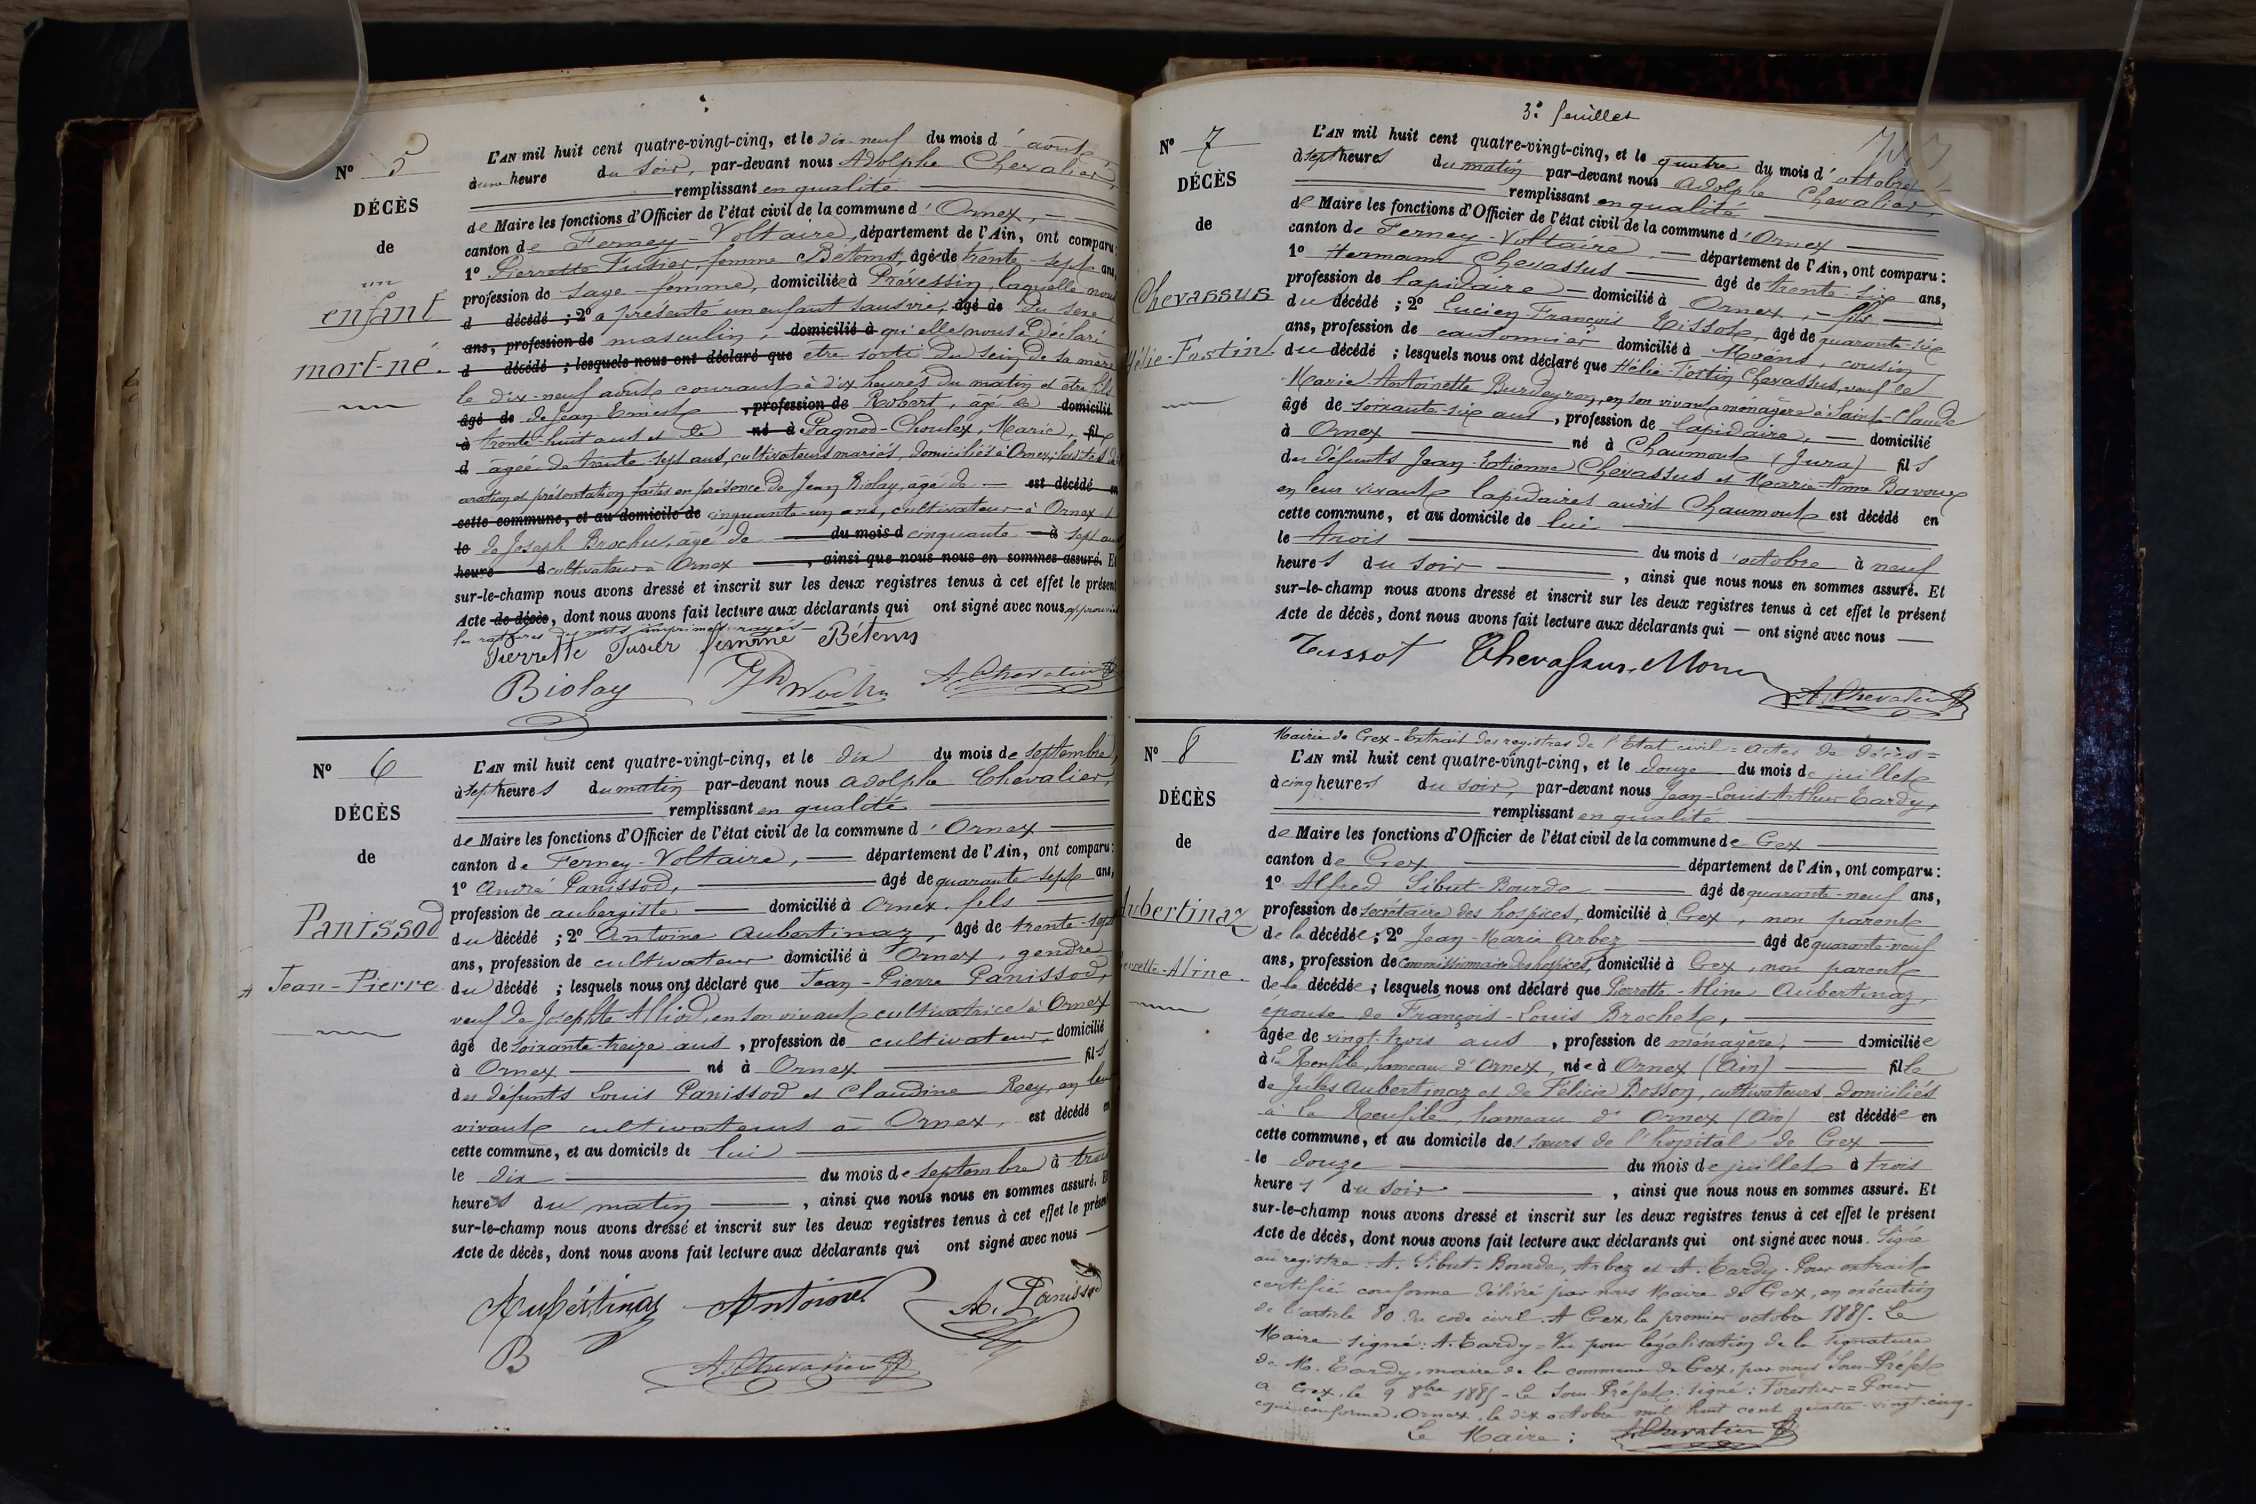 N° 5
DÉCÈS
de
un
enfant
mort-né.
L'AN mil huit cent quatre-vingt-cinq, et le dix-neuf du mois d'août
à une heure du soir, par-devant nous Adolphe Chevalier,
remplissant en qualité
de Maire les fonctions d'Officier de l'état civil de la commune d'Ornex,
canton de Ferney-Voltaire, département de l'Ain, ont comparu:
1° Pierrette Fusier, femme Bétems, âgée de trente-sept ans,
profession de sage-femme, domiciliée à Prévessin, laquelle nous
d décédé ; 2° a présenté un enfant sans vie, âgé de du sexe
ans, profession de masculin, domicilié à qu'elle nous a déclaré
d décédé ; lesquels nous ont déclaré que être sorti du sein de sa mère
le dix-neuf août courant à dix heures du matin et être fils
âgé de de Jean-Ernest , profession de Robert, âgé de domicilié
à trente-huit ans et de né à Pagnod-Choulex, Marie, fil
d âgée de trente-sept ans, cultivateurs mariés, domiciliés à Ornex;
aration et présentation faites en présence de Jean Biolay, âgé de est décédé en
cette commune, et au domicile de cinquante-un ans, cultivateur à Ornex
le de Joseph Brochu, âgé de du mois d cinquante à sept ans
heure d cultivateur à Ornex , ainsi que nous nous en sommes assuré. Et
sur-le-champ nous avons dressé et inscrit sur les deux registres tenus à cet effet le présent
Acte de décès, dont nous avons fait lecture aux déclarants qui ont signé avec nous approuvé
les ratures des mots imprimés rayés
Pierrette Fusier femme Bétems
Biolay A. Chevalier
N° 6
DÉCÈS
de
Panissod
Jean-Pierre
L'AN mil huit cent quatre-vingt-cinq, et le dix du mois de septembre,
à sept heures du matin par-devant nous Adolphe Chevalier,
remplissant en qualité
de Maire les fonctions d'Officier de l'état civil de la commune d'Ornex
canton de Ferney-Voltaire, département de l'Ain, ont comparu:
1° André Panissod, âgé de quarante-sept ans,
profession de aubergiste domicilié à Ornex, fils
du décédé ; 2° Antoine Aubertinaz, âgé de trente-sept
ans, profession de cultivateur domicilié à Ornex, gendre
du décédé ; lesquels nous ont déclaré que Jean-Pierre Panissod,
veuf de Josephte Alliod, en son vivant cultivatrice à Ornex
âgé de soixante-treize ans, profession de cultivateur, domicilié
à Ornex né à Ornex fils
des défunts Louis Panissod et Claudine Rey, en leur
vivant cultivateurs à Ornex, est décédé en
cette commune, et au domicile de lui
le dix du mois de septembre à trois
heures du matin , ainsi que nous nous en sommes assuré. Et
sur-le-champ nous avons dressé et inscrit sur les deux registres tenus à cet effet le présent
Acte de décès, dont nous avons fait lecture aux déclarants qui ont signé avec nous
Aubertinaz Antoine A. Panissod
B A. Chevalier
3e feuillet
N° 7
DÉCÈS
de
Chevassus
Hélie-Fostin.
L'AN mil huit cent quatre-vingt-cinq, et le quatre du mois d'octobre
à sept heures du matin par-devant nous Adolphe Chevalier,
remplissant en qualité
de Maire les fonctions d'Officier de l'état civil de la commune d'Ornex
canton de Ferney-Voltaire, département de l'Ain, ont comparu:
1° Hermann Chevassus âgé de trente-six ans,
profession de lapidaire domicilié à Ornex, fils
du décédé ; 2° Lucien-François Tissot, âgé de quarante-six
ans, profession de cantonnier domicilié à Moëns, cousin
du décédé ; lesquels nous ont déclaré que Hélie-Fostin Chevassus, veuf de
Marie-Antoinette Burdeyron, en son vivant ménagère à Saint-Claude
âgé de soixante-six ans, profession de lapidaire, domicilié
à Ornex né à Chaumont (Jura) fils
des défunts Jean-Estienne Chevassus et Marie-Anne Bavoux
en leur vivant lapidaires audit Chaumont est décédé en
cette commune, et au domicile de lui
le trois du mois d'octobre à neuf
heures du soir , ainsi que nous nous en sommes assuré. Et
sur-le-champ nous avons dressé et inscrit sur les deux registres tenus à cet effet le présent
Acte de décès, dont nous avons fait lecture aux déclarants qui ont signé avec nous
Tissot Chevassus
A. Chevalier
N° 8
DÉCÈS
de
Aubertinaz
Pierrette-Aline.
Mairie de Gex - Extrait des registres de l'Etat civil = Actes de décès =
L'AN mil huit cent quatre-vingt-cinq, et le douze du mois de juillet
à cinq heures du soir, par-devant nous Jean-Louis-Arthur Tardy,
remplissant en qualité
de Maire les fonctions d'Officier de l'état civil de la commune de Gex
canton de Gex département de l'Ain, ont comparu:
1° Alfred Sibut-Bourde âgé de quarante-neuf ans,
profession de secrétaire des hospices, domicilié à Gex, non parent
de la décédée ; 2° Jean-Marie Arbez âgé de quarante-neuf
ans, profession de commissionnaire des hospices, domicilié à Gex, non parent
de la décédée ; lesquels nous ont déclaré que Pierrette-Aline Aubertinaz,
épouse de François-Louis Brochet,
âgée de vingt-trois ans , profession de ménagère, domiciliée
à la Renfile, hameau d'Ornex, née à Ornex (Ain) fille
de Jules Aubertinaz et de Félicie Bosson, cultivateurs, domiciliés
à la Renfile, hameau d'Ornex (Ain) est décédée en
cette commune, et au domicile des sœurs de l'hôpital de Gex
le douze du mois de juillet à trois
heures du soir , ainsi que nous nous en sommes assuré. Et
sur-le-champ nous avons dressé et inscrit sur les deux registres tenus à cet effet le présent
Acte de décès, dont nous avons fait lecture aux déclarants qui ont signé avec nous. Signé
au registre: A. Sibut-Bourde, Arbez et A. Tardy. Pour extrait
certifié conforme délivré par nous Maire de Gex, en exécution
de l'article 80 du code civil. A Gex, le premier octobre 1885. Le
Maire: signé: A. Tardy = Vu pour légalisation de la signature
de M. Tardy, maire de la commune de Gex, par nous Sous-Préfet
à Gex, le 9 8bre 1885 - Le Sous-Préfet: signé: Forestier = Pour
copie conforme, Ornex, le dix octobre mil huit cent quatre-vingt-cinq.
Le Maire: A. Chevalier